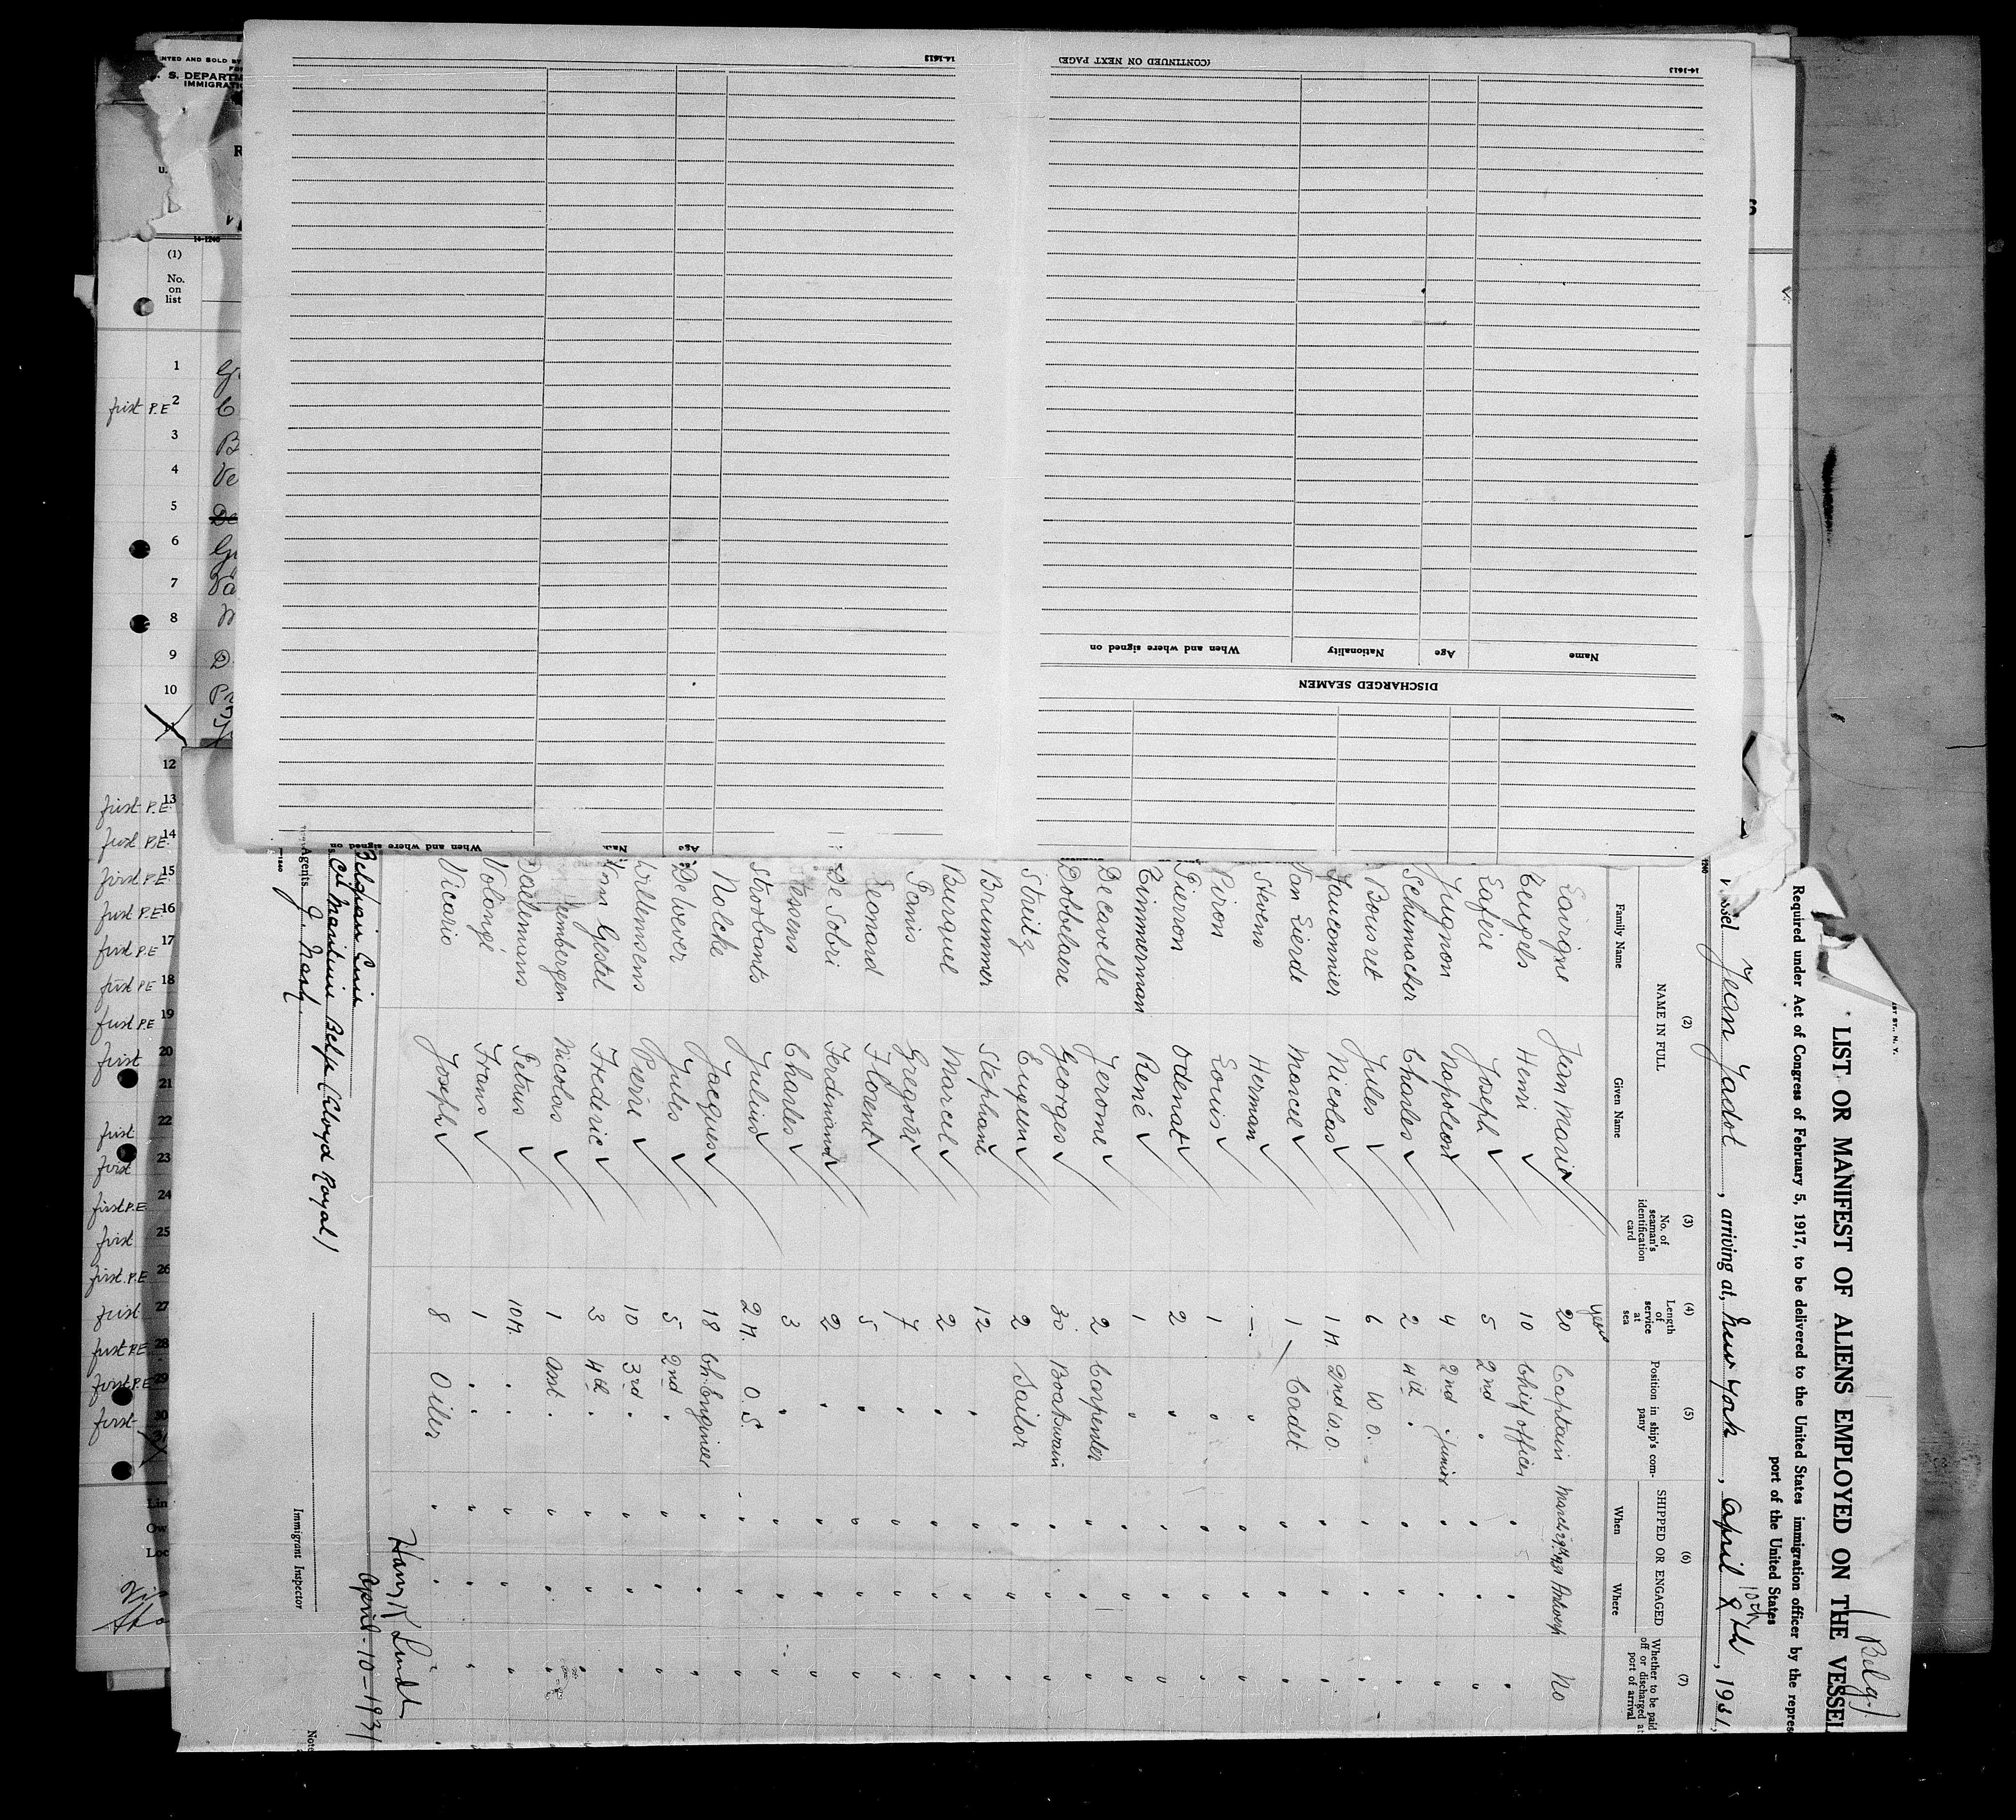 (Belg.)
LIST OR MANIFEST OF ALIENS EMPLOYED ON THE VESSEL
Required under Act of Congress of February 5, 1917, to be delivered to the United States immigration officer by the repres
port of the United States
Jean Jadot, arriving at, New York, April 10th, 1931,
(2)
NAME IN FULL
Family Name
Given Name
(3)
No. of seaman's identification card
(4)
Length of service at sea
(5)
Position in ship's company
(6)
SHIPPED OR ENGAGED
When
Where
(7)
Whether to be paid off or discharged at port of arrival
years
Jean Marie 20 Captain March 29th 1931 Antwerp No
Teugels Henri 10 Chief officer " " "
Lafère Joseph 5 2nd " " " "
Jugnon Napoleon 4 2nd " junior " " "
Schumacher Charles 2 4th " " " "
Bousret Jules 6 W.O. " " "
Fauconnier Nicolas 1 M. 2nd W.O. " " "
Van Lierde Marcel 1 Cadet " " "
Stevens Herman - " " " "
Piron Louis 1 " " " "
Pierron Odenat 2 " " " "
Timmerman René 1 " " " "
Decavelle Jerome 2 Carpenter " " "
Dobbelaere Georges 30 Boatswain " " "
Struitz Eugeen 2 Sailor " " "
Brummer Stephane 12 " " " "
Burquel Marcel 2 " " " "
Panis Gregoire 7 " " " "
Leonard Florent 5 " " " "
De Sobri Ferdinand 2 " " " "
Charles 3 " " " "
Stroobants Julius 2 M. O.S. " " "
Nolcke Jacques 18 Ch. Engineer " " "
De Wever Jules 5 2nd " " " "
Willemsens Pierre 10 3rd " " " "
Van Gestel Frederic 3 4th " " " "
Nicolas 1 Asst. " " " "
Daelemans Petrus 10 M. " " " "
Volangé Frans 1 " " " "
Vicario Joseph 8 Oiler " " "
Harry K Lindt
April-10-1931
Belgian Line
Cie Maritime Belge (Lloyd Royal)
Agents
Immigrant Inspector
(CONTINUED ON NEXT PAGE)
14-1613
14-1613
DISCHARGED SEAMEN
Name
Age
Nationality
When and where signed on
Age
When and where signed on
S. DEPARTM
IMMIGRATIO
14-1240
(1)
No. on list
1
first P.E 2
3
4
5
6
7
8
9
10
12
first P.E. 13
first P.E. 14
first P.E. 15
first P.E. 16
first P.E 17
first P.E 18
first P.E 19
first 20
21
first 22
first 23
first P.E 24
first 25
first P.E 26
first 27
first P.E 28
first P.E 29
first 30
Lin
Ow
Loc